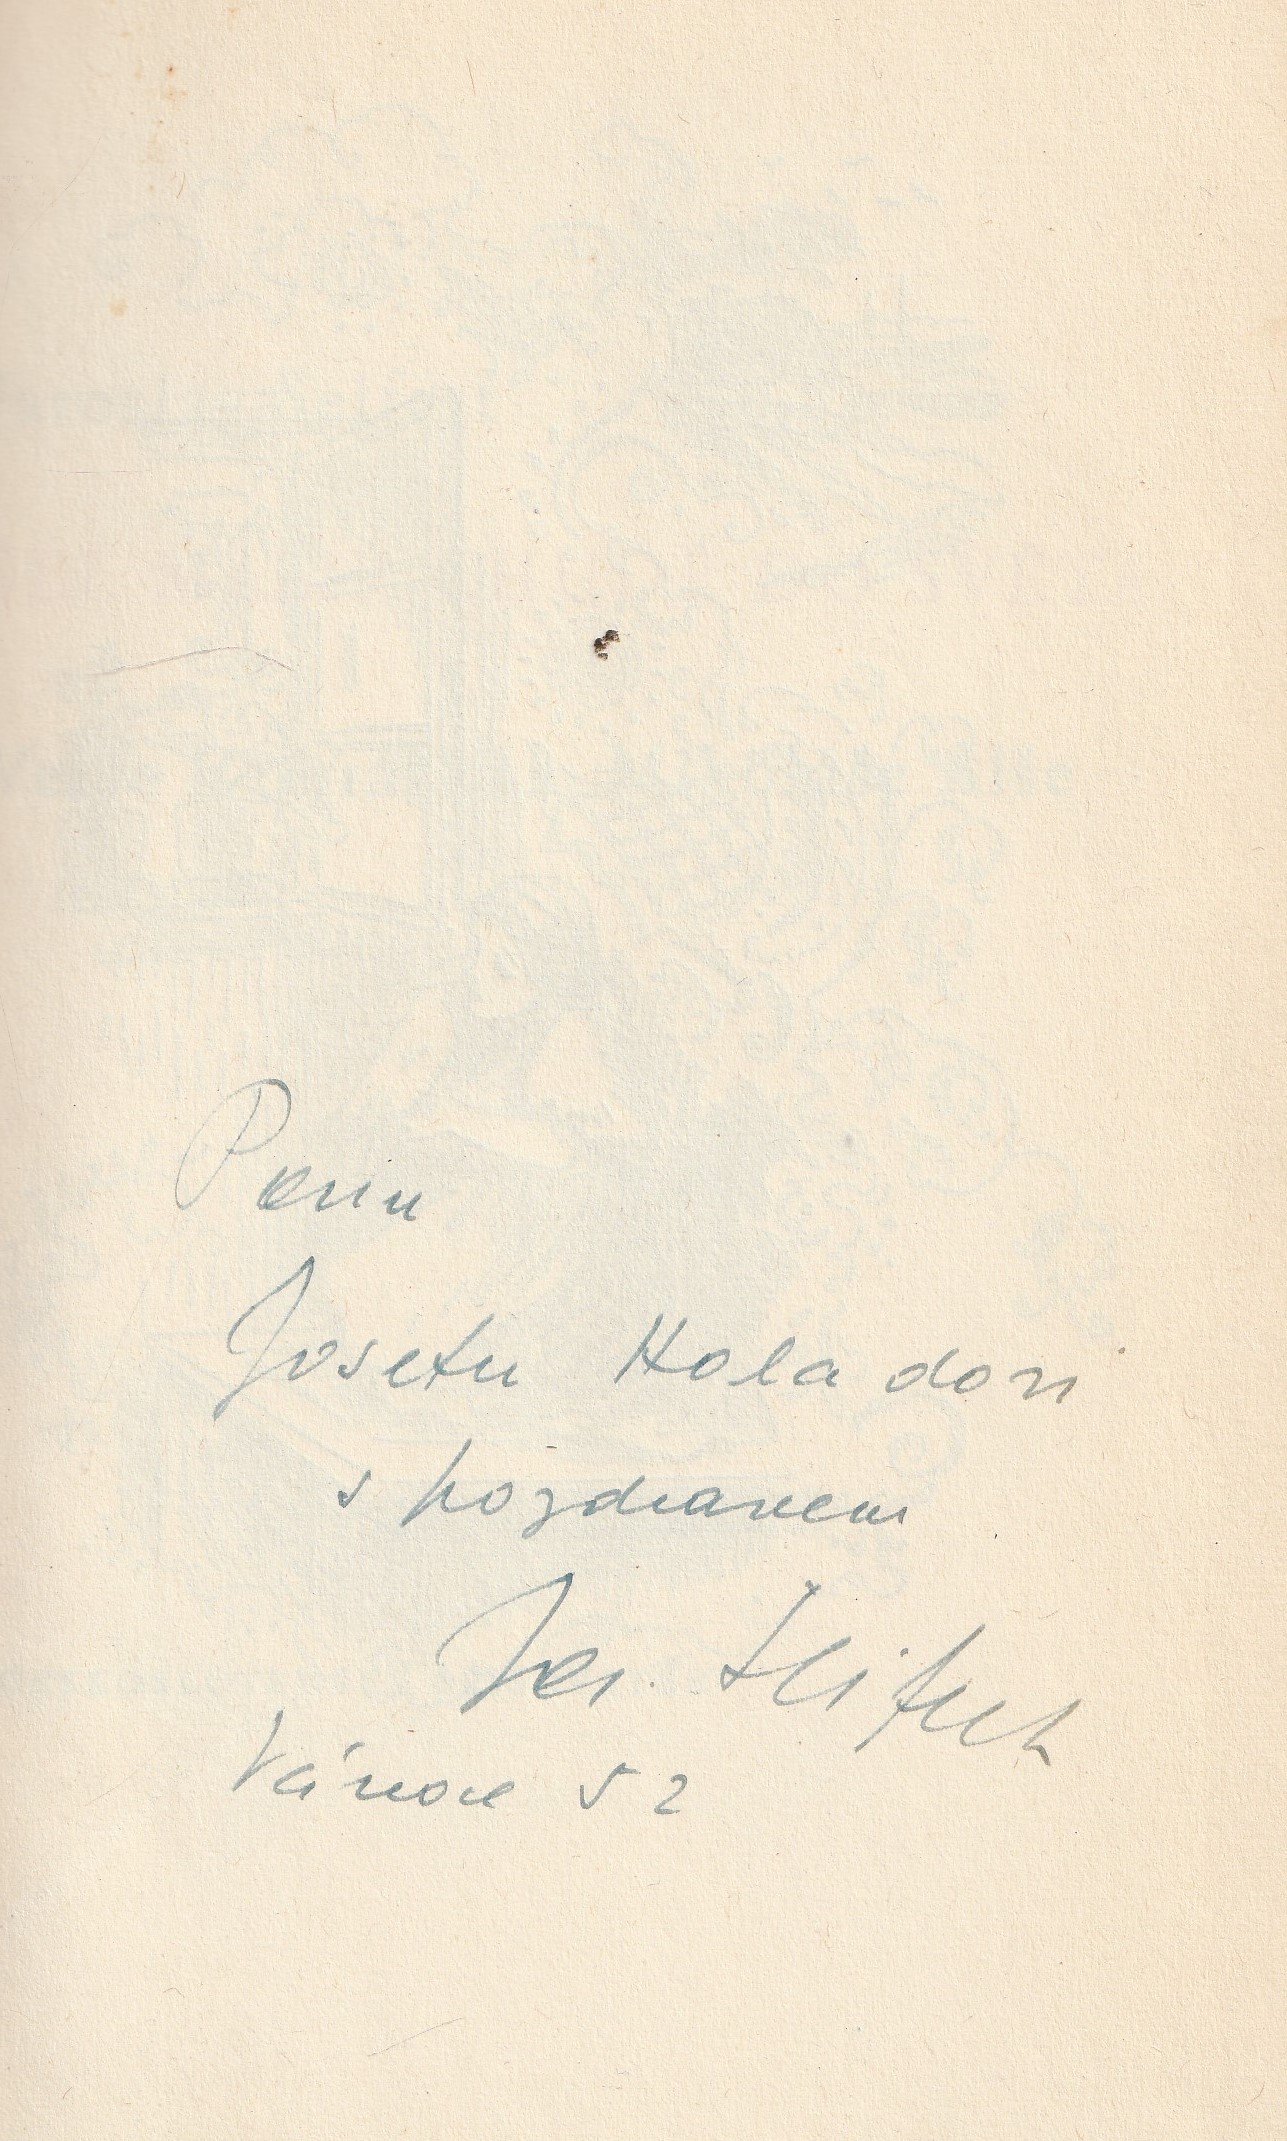 Panu
Josefu Holadovi
s pozdravem
Jar. Seifert
Vánoce 52